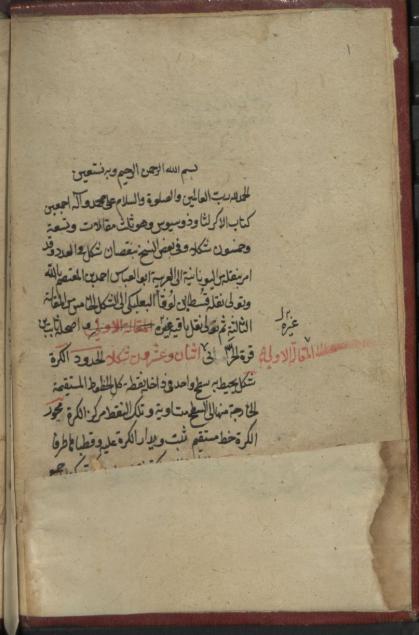 ١
بسم الله الرحمن الرحيم وبه نستعين
الحمد لله رب العالمين والصلوة والسلام على محمد وآله اجمعين
كتاب الاكر لثاوذوسيوس وهو ثلث مقالات وتسعة
وخمسون شكلا وفي بعض النسخ بنقصان شكل في العدد وقد
امر بنقله من اليونانية الى العربية ابو العباس احمد بن المعتصم بالله
وتولى نقله قسطا بن لوقا البعلبكي الى الشكل الخامس من المقالة
الثالثة ثم تولى نقل باقيه غيره واصلحه ثابت بن
غيره
قرة الحراني المقالة الاولى اثنان وعشرون شكلا الحدود الكرة
شكل يحيط به سطح واحد في داخله نقطة كل الخطوط المستقيمة
الخارجة منها الى السطح متساوية وتلك النقطة مركز الكرة محور
الكرة خط مستقيم ثبت ويدار الكرة عليه وقطباها طرفا